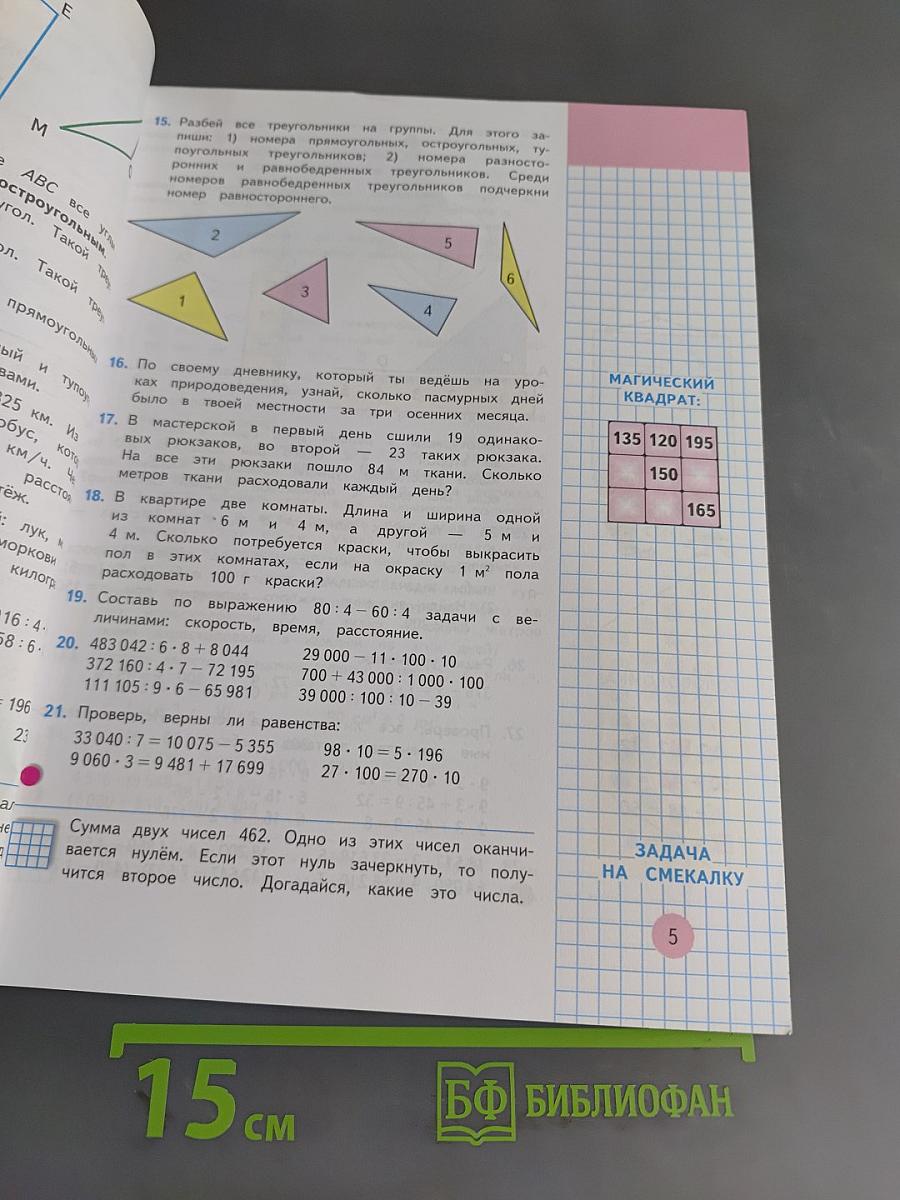 E
M
ABC все
остроугольным.
угол. Такой
ол. Такой
прямоугольны
ый и тупоу
вами.
825 км. Из
обус, кото
км/ч. Че
расстоя
тёж.
лук,
моркови
килогр
116 : 4.
58 : 6.
= 196
23
15. Разбей все треугольники на группы. Для этого за-
пиши: 1) номера прямоугольных, остроугольных, ту-
поугольных треугольников; 2) номера разносто-
ронних и равнобедренных треугольников. Среди
номеров равнобедренных треугольников подчеркни
номер равностороннего.
2
5
6
1
3
4
16. По своему дневнику, который ты ведёшь на уро-
ках природоведения, узнай, сколько пасмурных дней
было в твоей местности за три осенних месяца.
17. В мастерской в первый день сшили 19 одинако-
вых рюкзаков, во второй — 23 таких рюкзака.
На все эти рюкзаки пошло 84 м ткани. Сколько
метров ткани расходовали каждый день?
18. В квартире две комнаты. Длина и ширина одной
из комнат 6 м и 4 м, а другой — 5 м и
4 м. Сколько потребуется краски, чтобы выкрасить
пол в этих комнатах, если на окраску 1 м² пола
расходовать 100 г краски?
19. Составь по выражению 80 : 4 − 60 : 4 задачи с ве-
личинами: скорость, время, расстояние.
20. 483 042 : 6 · 8 + 8 044 29 000 − 11 · 100 · 10
372 160 : 4 · 7 − 72 195 700 + 43 000 : 1 000 · 100
111 105 : 9 · 6 − 65 981 39 000 : 100 : 10 − 39
21. Проверь, верны ли равенства:
33 040 : 7 = 10 075 − 5 355 98 · 10 = 5 · 196
9 060 · 3 = 9 481 + 17 699 27 · 100 = 270 · 10
Сумма двух чисел 462. Одно из этих чисел оканчи-
вается нулём. Если этот нуль зачеркнуть, то полу-
чится второе число. Догадайся, какие это числа.
МАГИЧЕСКИЙ
КВАДРАТ:
135 120 195
150
165
ЗАДАЧА
НА СМЕКАЛКУ
5
15 см
БФ БИБЛИОФАН